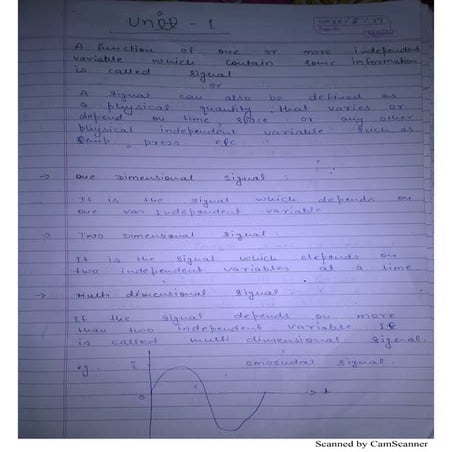 Unit - 1
A function of one or more independent
variable which contain some information
is called signal
or
A signal can also be defined as
a physical quantity that varies or
depend on time, space or any other
physical independent variable such as
temp, press etc
→ One Dimensional signal :
It is the signal which depends on
one var Independent variable
→ Two Dimensional signal
It is the signal which depends on
two independent variables at a time
→ Multi dimensional signal
If the signal depends on more
than two independent variable
is called multi dimensional signal.
eg. signal.
0
t
Scanned by CamScanner